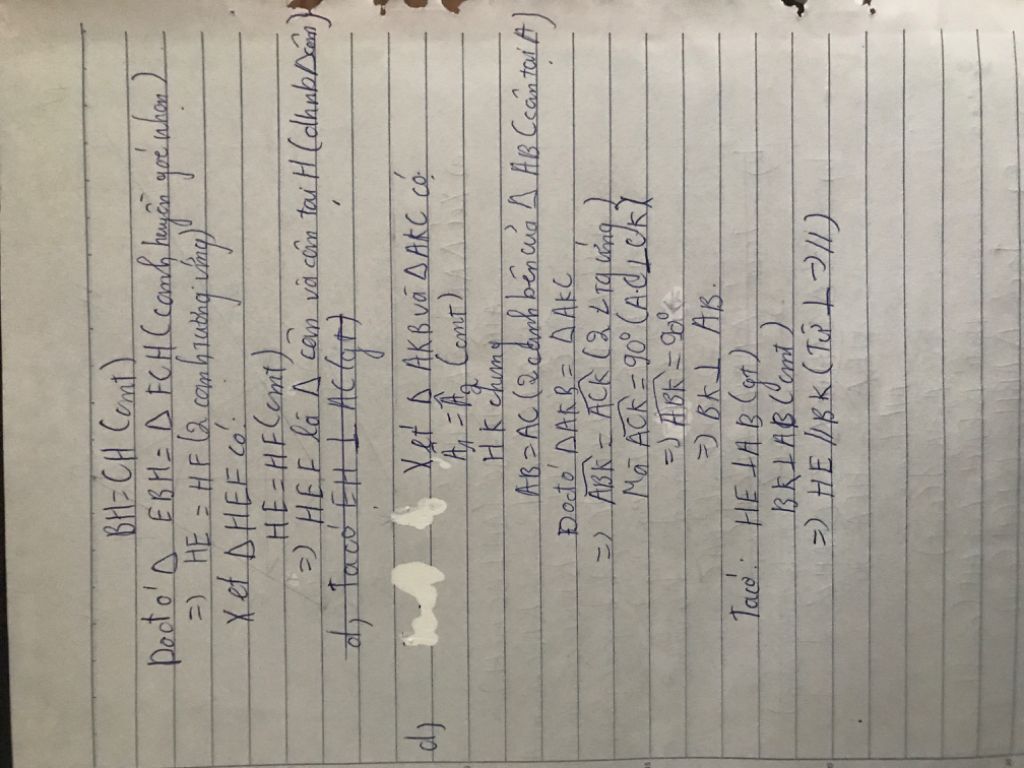 BH=CH (cmt)
Do đó Δ EBH = Δ FCH (cạnh huyền góc nhọn)
=) HE = HF (2 cạnh tương ứng)
Xét Δ HEF có:
HE = HF (cmt)
=) HEF là Δ cân và cân tại H (dhnb Δ cân)
d, Ta có EH ⊥ AC (gt)
d) Xét Δ AKB và Δ AKC có
Â₁ = Â₂ (cmt)
HK chung
AB = AC (2 cạnh bên của Δ ABC cân tại A)
Do đó Δ AKB = Δ AKC
=) ABK = ACK (2 góc tg ứng)
Mà ACK = 90° (AC ⊥ CK)
=) ABK = 90°
=) BK ⊥ AB.
Ta có: HE ⊥ AB (gt)
BK ⊥ AB (cmt)
=) HE // BK (Từ ⊥ -> //)